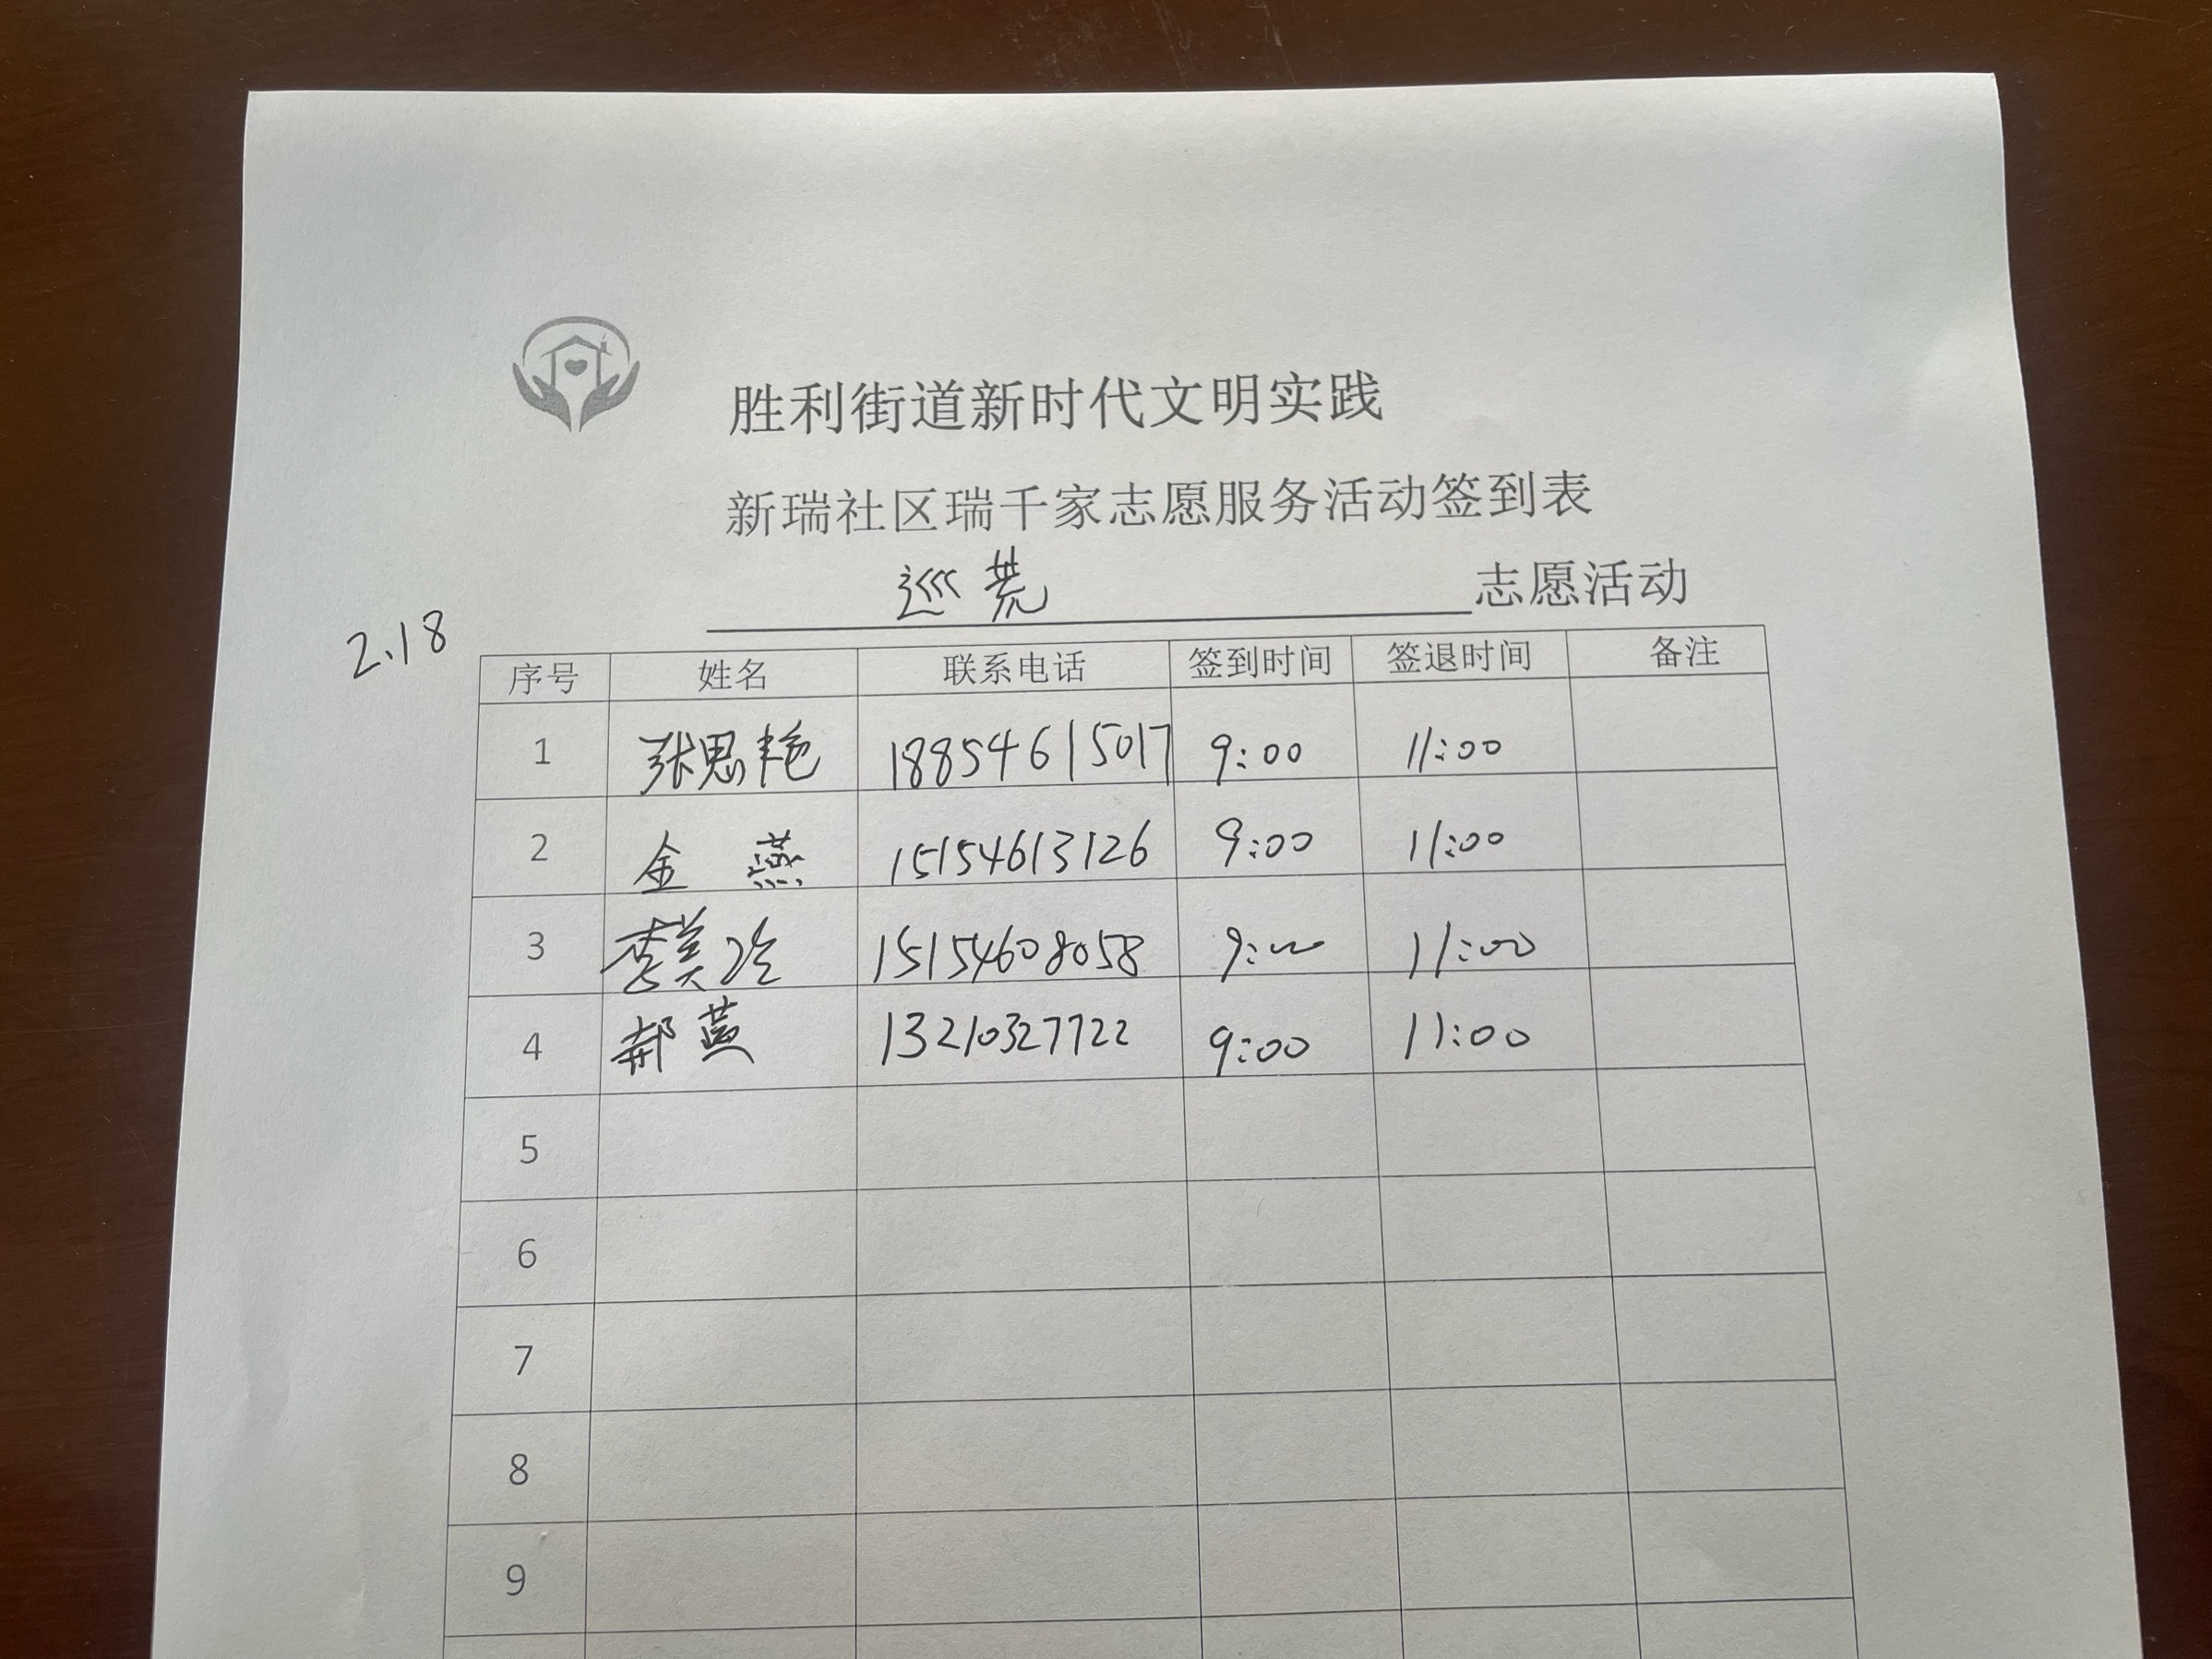 胜利街道新时代文明实践
新瑞社区瑞千家志愿服务活动签到表
巡荒 志愿活动
2.18
序号 姓名 联系电话 签到时间 签退时间 备注
1 张思艳 18854615017 9:00 11:00
2 金燕 15154613126 9:00 11:00
3 李美玲 15154608058 9:00 11:00
4 郝燕 13210327722 9:00 11:00
5
6
7
8
9